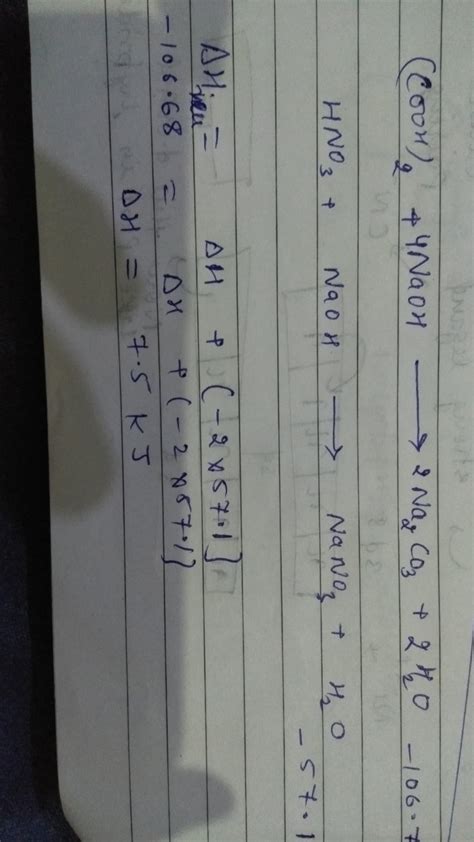 (COOH)₂ + 4NaOH ⟶ 2Na₂CO₃ + 2H₂O -106.7
HNO₃ + NaOH ⟶ NaNO₃ + H₂O -57.1
= ΔH + (-2×57.1)
-106.68 = ΔH + (-2×57.1)
ΔH = 7.5 KJ